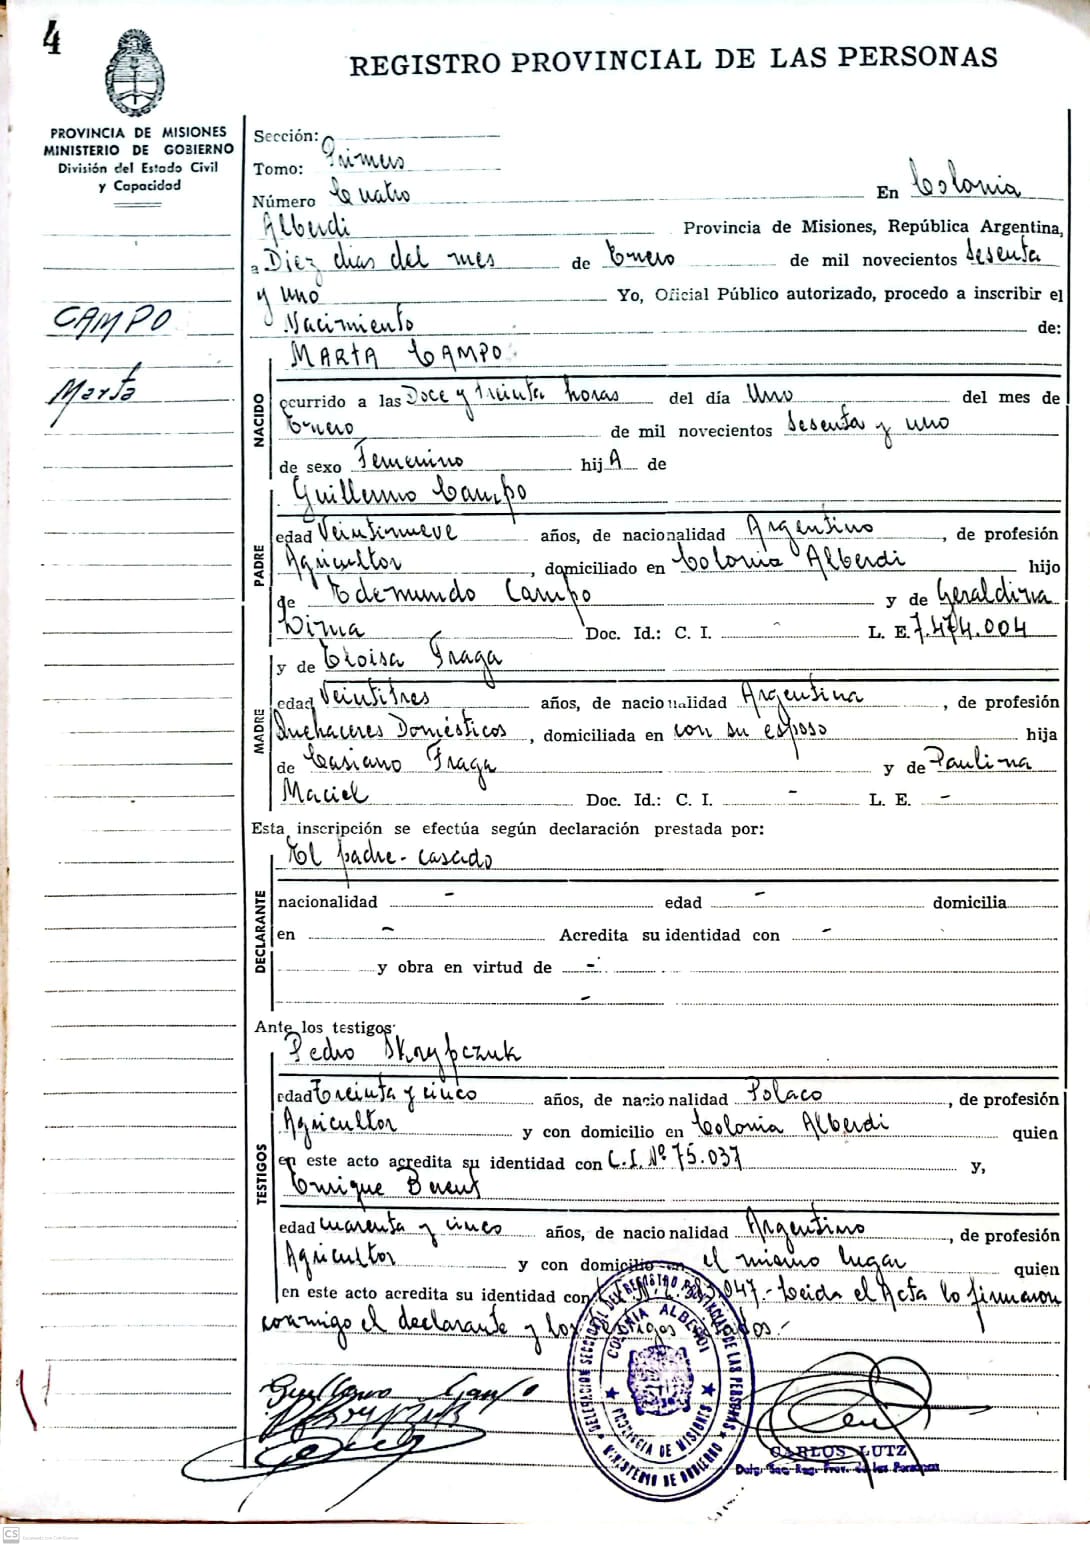 4
REGISTRO PROVINCIAL DE LAS PERSONAS
PROVINCIA DE MISIONES
MINISTERIO DE GOBIERNO
División del Estado Civil
y Capacidad
CAMPO
Marta
Sección:
Tomo: Primero
Número Cuatro En Colonia
Alberdi Provincia de Misiones, República Argentina,
a Diez dias del mes de Enero de mil novecientos sesenta
y uno Yo, Oficial Público autorizado, procedo a inscribir el
Nacimiento de:
NACIDO
MARTA CAMPO
ocurrido a las Doce y treinta horas del día Uno del mes de
Enero de mil novecientos sesenta y uno
de sexo Femenino hijA de
PADRE
Guillermo Campo
edad Veintinueve años, de nacionalidad Argentino, de profesión
Agricultor, domiciliado en Colonia Alberdi hijo
de Edemundo Campo y de Geraldina
Lima Doc. Id.: C. I. - L. E. 7.474.004
MADRE
y de Eloisa Fraga
edad Veintitres años, de nacionalidad Argentina, de profesión
Quehaceres Domésticos, domiciliada en con su esposo hija
de Casiano Fraga y de Paulina
Maciel Doc. Id.: C. I. - L. E. -
Esta inscripción se efectúa según declaración prestada por:
DECLARANTE
El padre - casado
nacionalidad - edad - domicilia
en - Acredita su identidad con -
y obra en virtud de -
-
Ante los testigos:
TESTIGOS
Pedro Skrypczuk
edad Treinta y cinco años, de nacionalidad Polaco, de profesión
Agricultor y con domicilio en Colonia Alberdi quien
en este acto acredita su identidad con C.I. Nº 75.037 y,
Enrique
edad cuarenta y cinco años, de nacionalidad Argentino, de profesión
Agricultor y con domicilio en el mismo lugar quien
en este acto acredita su identidad con 947.- Leida el Acta lo firmaron
conmigo el declarante y los testigos
Guillermo Campo
DELEGACION SECCIONAL DEL REGISTRO PROVINCIAL DE LAS PERSONAS
COLONIA ALBERDI
PROVINCIA DE MISIONES
MINISTERIO DE GOBIERNO
CARLOS LUTZ
Deleg. Sec. Reg. Prov. de las Personas
CS